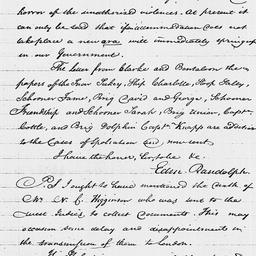 horror of the unauthorized violences. At present it
can only be said that if accommodation does not
take place a new era will immediately spring up
in our Government.
The letter from Clarke and Bentalon the
papers of the Snow Sukey, Ship Charlotte, Sloop Sally,
Schooner Fame, Brig David and George, Schooner
Friendship and Schooner Sarah, Brig Union, Captn
Cottle, and Brig Dolphin Captn Knapp are additions
to the Cases of Spoliation
I have the honor, Sir, to be &c
Edm. Randolph
P.S. I ought to have mentioned the death of
Mr N. C. Higginson who was sent to the
West Indies, to collect documents. This may
occasion some delay and disappointments in
the transmission of them to London.